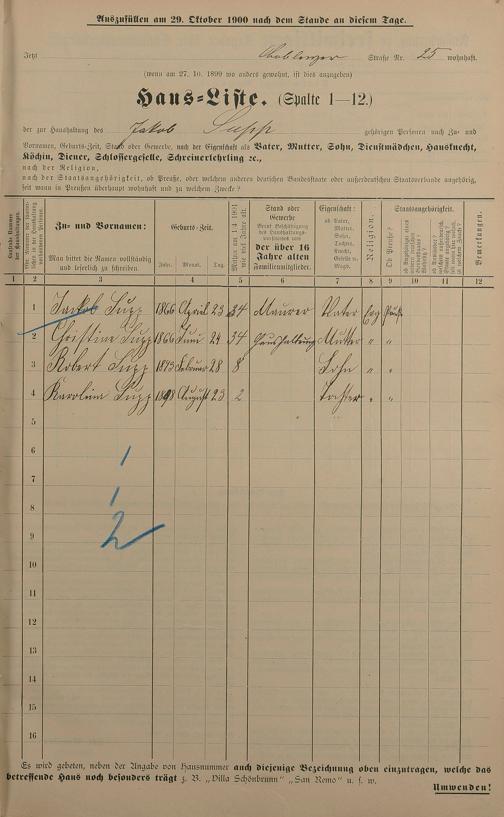 Auszufüllen am 29. Oktober 1900 nach dem Stande an diesem Tage.
Jetzt Coblenzer Straße Nr. 25 wohnhaft.
(wenn am 27. 10. 1899 wo anders gewohnt, ist dies anzugeben)
Haus-Liste. (Spalte 1—12.)
der zur Haushaltung des Jakob Supp gehörigen Personen nach Zu- und
Vornamen, Geburts-Zeit, Stand oder Gewerbe, nach der Eigenschaft als Vater, Mutter, Sohn, Dienstmädchen, Hausknecht,
Köchin, Diener, Schlossergeselle, Schreinerlehrling ꝛc.,
nach der Religion,
nach der Staatsangehörigkeit, ob Preuße, oder welchen anderen deutschen Bundesstaate oder außerdeutschen Staatsverbande angehörig,
seit wann in Preußen überhaupt wohnhaft und zu welchem Zwecke?
Zu- und Vornamen:
Man bittet die Namen vollständig
und leserlich zu schreiben.
Geburts-Zeit.
Jahr. Monat. Tag.
Mithin am 1/4 1901
wie viel Jahre alt.
Stand oder
Gewerbe
der über 16
Jahre alten
Familienmitglieder.
Eigenschaft:
ob Vater,
Mutter,
Sohn,
Tochter,
Knecht,
Geselle u.
Magd.
Religion.
Staatsangehörigkeit.
Ob Preuße?
Bemerkungen.
1 2 3 4 5 6 7 8 9 10 11 12
1 Jakob Supp 1866 April 23 34 Maurer Vater Evg
2 Christine Supp 1866 Juni 24 34 Haushaltung Mutter " "
3 Robert Supp Februar 28 8 Sohn " "
4 Karolina Supp 1898 August 23 2 Tochter " "
5
6
1
7
1
8
2
9
10
11
12
13
14
15
16
Es wird gebeten, neben der Angabe von Hausnummer auch diejenige Bezeichnung oben einzutragen, welche das
betreffende Haus noch besonders trägt z. B. „Villa Schönbrunn" „San Remo" u. s. w.
Umwenden!